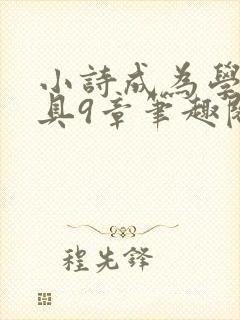 小詩成為學
具9章筆趣閣
程先鋒